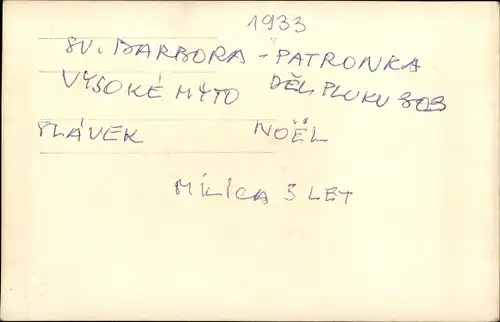 1933
SV. BARBORA - PATRONKA
VYSOKÉ MÝTO DĚL. PLUKU 303
SLÁVEK NOËL
MILICA 5 LET